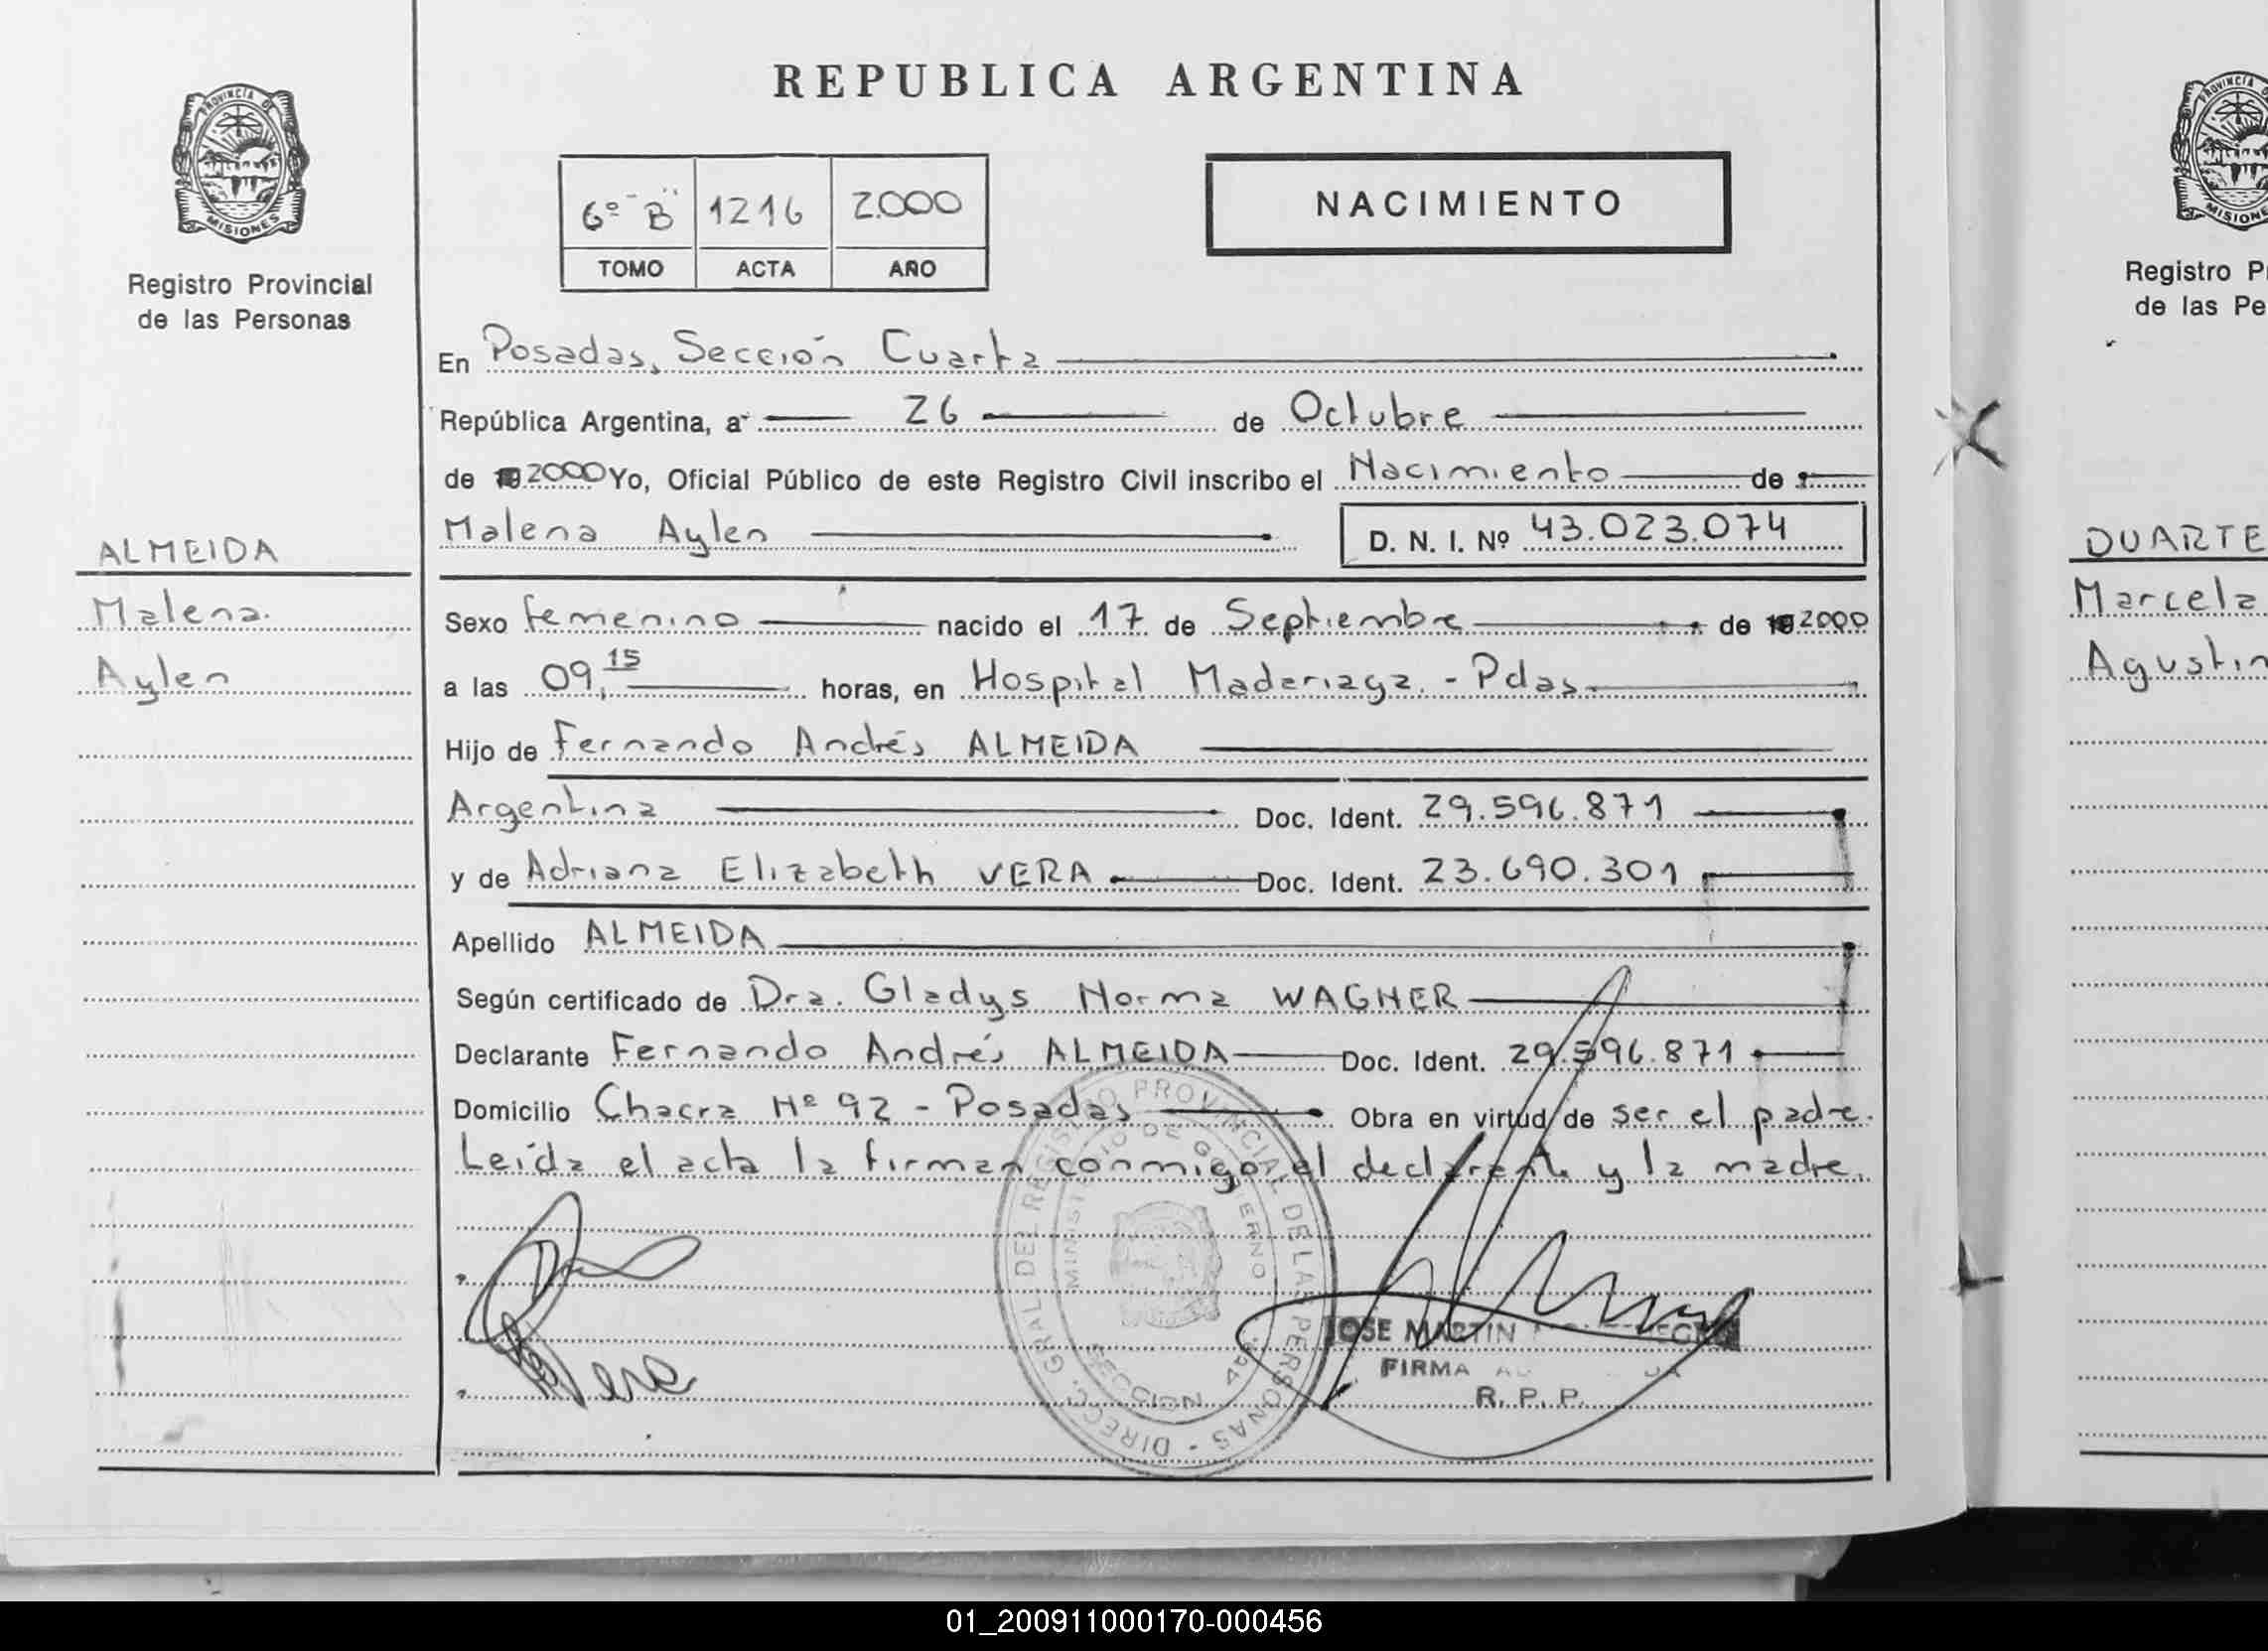 REPUBLICA ARGENTINA
PROVINCIA DE
MISIONES
Registro Provincial
de las Personas
6º "B" 1216 2.000
TOMO ACTA AÑO
NACIMIENTO
En Posadas, Sección Cuarta
República Argentina, a 26 de Octubre
de 19 2000 Yo, Oficial Público de este Registro Civil inscribo el Nacimiento de
Malena Aylen D. N. I. Nº 43.023.074
ALMEIDA
Malena
Aylen
Sexo femenino nacido el 17 de Septiembre de 19 2000
a las 09,15 horas, en Hospital Madariaga. - Pdas
Hijo de Fernando Andrés ALMEIDA
Argentina Doc. Ident. 29.596.871
y de Adriana Elizabeth VERA Doc. Ident. 23.690.301
Apellido ALMEIDA
Según certificado de Dra. Gladys Norma WAGNER
Declarante Fernando Andrés ALMEIDA Doc. Ident. 29.596.871
Domicilio Chacra Nº 92 - Posadas Obra en virtud de ser el padre.
Leída el acta la firman conmigo el declarante y la madre.
DIRECC. GRAL. DEL REGISTRO PROVINCIAL DE LAS PERSONAS
MINISTERIO DE GOBIERNO
SECCION 4ta.
Vera
JOSE MARTIN
FIRMA
R. P. P.
PROVINCIA D
MISIONE
Registro P
de las Pe
DUARTE
Marcela
Agustin
01_200911000170-000456